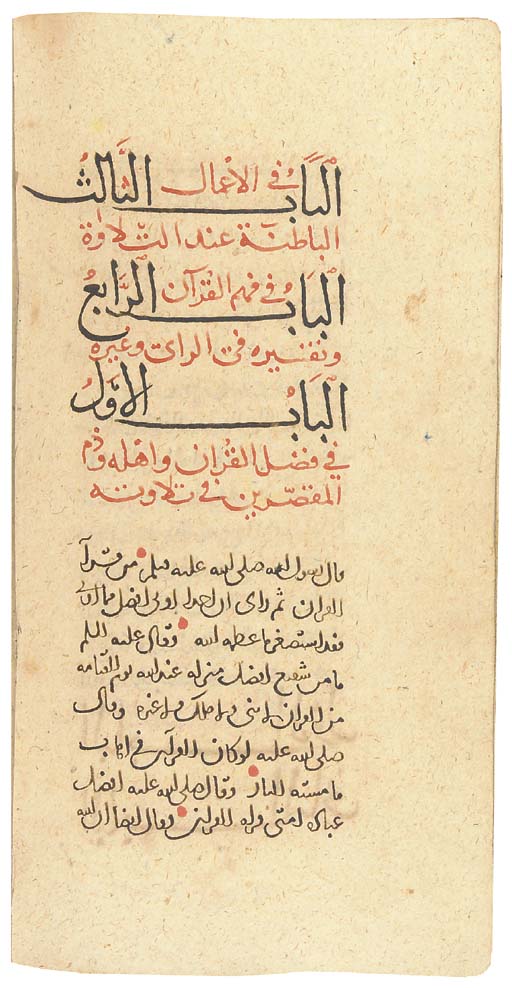 الباب الثالث في الأعمال
الباطنة عند التلاوة
الباب الرابع في فهم القرآن
وتفسيره في الراى وغيره
الباب الأول
في فضل القران واهله وذم
المقصرين في تلاوته
قال رسول الله صلى الله عليه وسلم من قرأ
القران ثم راى ان احدا اوتى افضل مما اوتى
فقد استصغر ما عظمه الله وقال عليه السلم
ما من شفيع افضل منزله عند الله يوم القيامه
من القران لا نبى ولا ملك ولا غيره وقال
صلى الله عليه لو كان القرآن في اهاب
ما مسته النار وقال صلى الله عليه افضل
عباده امتى قراه القران وقال ايضا ان الله